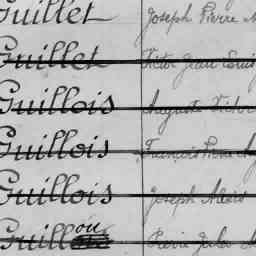 Guillet Joseph Pierre
Guillet Victor Jean Louis
Guillois Auguste Victor
Guillois François
Guillois Joseph Alexis
Guillou Pierre Jules